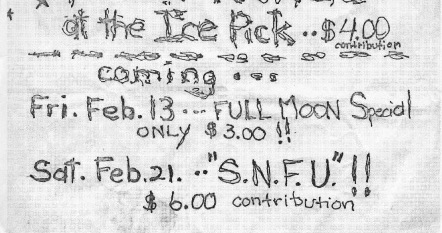 at the Ice Pick ·· $4.00
contribution
coming ...
Fri. Feb. 13 ··· FULL MOON Special
ONLY $3.00 !!
Sat. Feb. 21. ·· "S.N.F.U." !!
$6.00 contribution